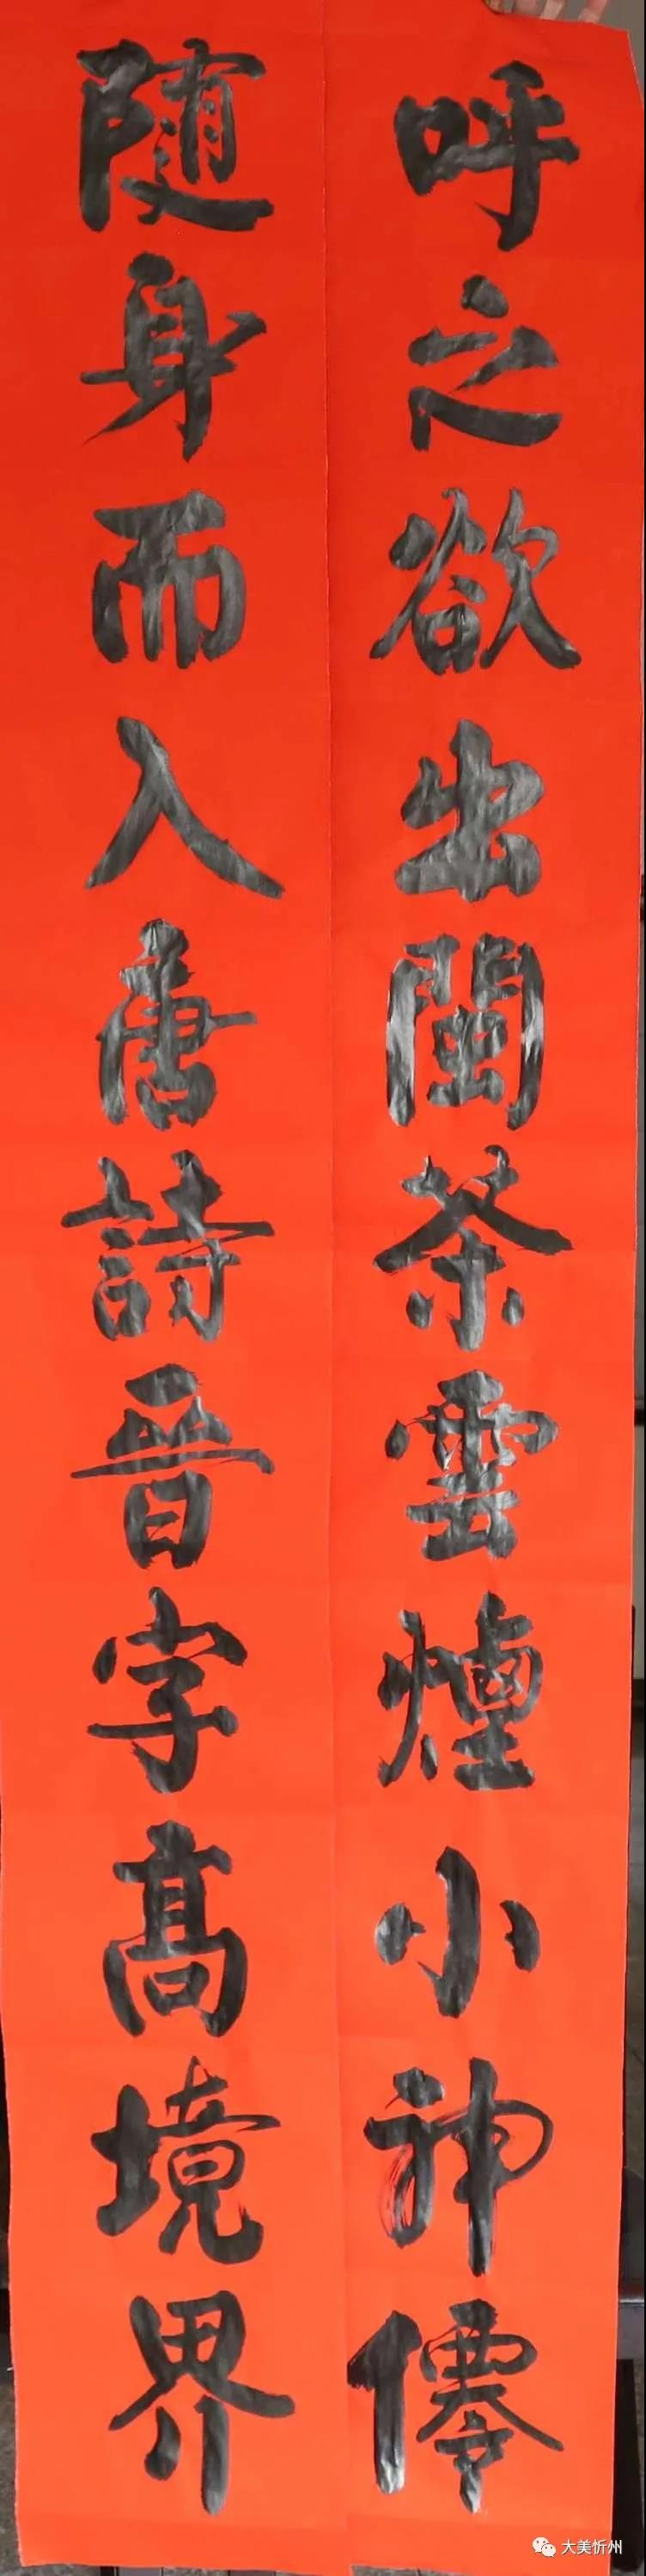 呼之欲出閩茶雲煙小神僊
随身而入唐詩晉字高境界
大美忻州